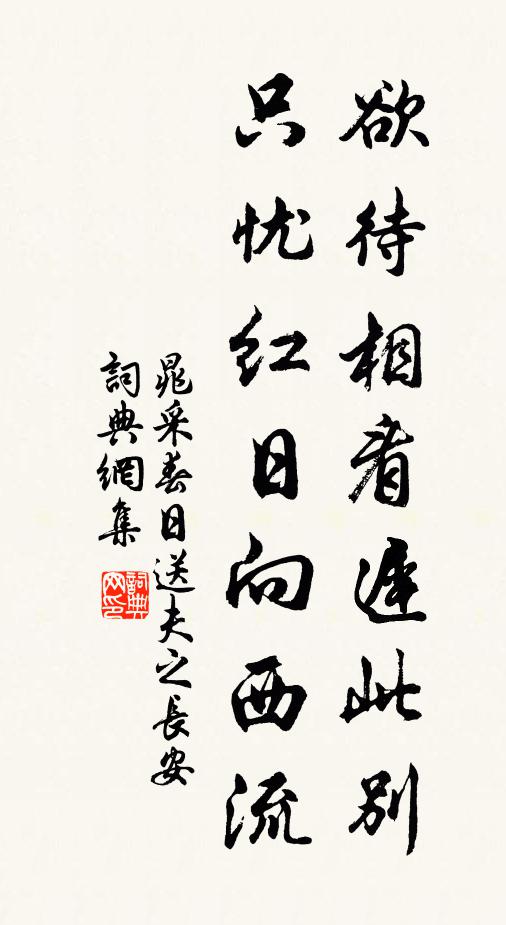 欲待相看遲此別
只忧紅日向西流
晁采春日送夫之長安
詞典網集
詞典
网印